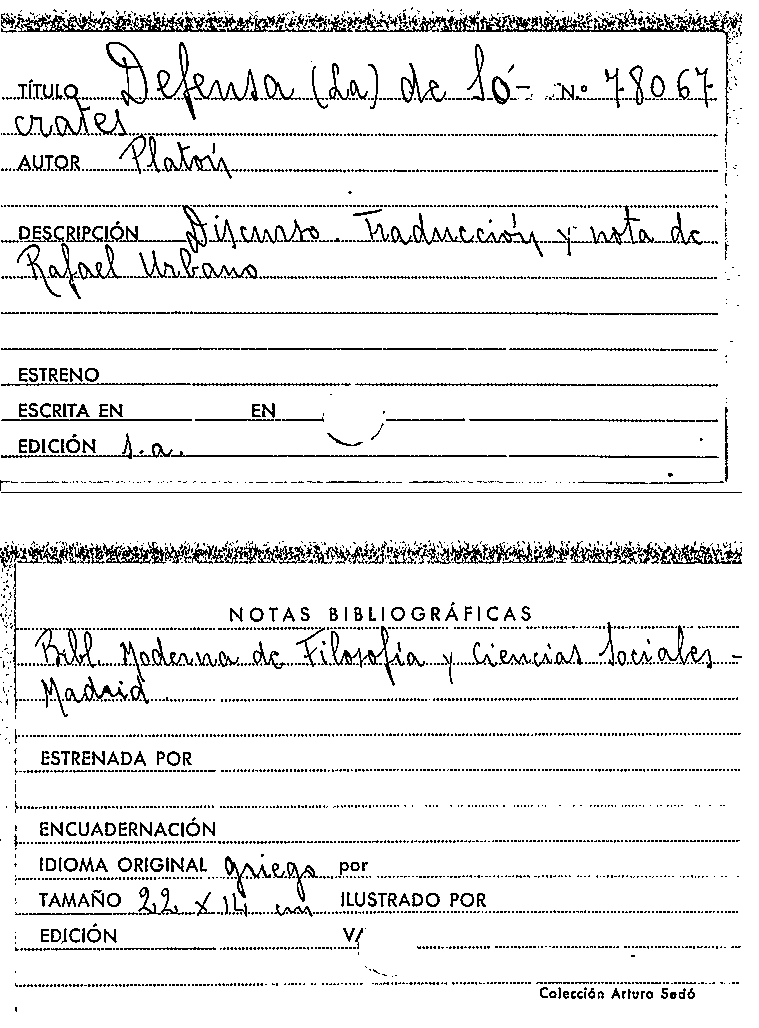 TÍTULO Defensa (La) de Só- N.º 78067
crates
AUTOR Platón
DESCRIPCIÓN Discurso. Traducción y nota de
Rafael Urbano
ESTRENO
ESCRITA EN EN
EDICIÓN s.a.
NOTAS BIBLIOGRÁFICAS
Bibl. Moderna de Filosofía y Ciencias Sociales -
Madrid.
ESTRENADA POR
ENCUADERNACIÓN
IDIOMA ORIGINAL griego por
TAMAÑO 22 x 14 cm ILUSTRADO POR
EDICIÓN V/
Colección Arturo Sedó